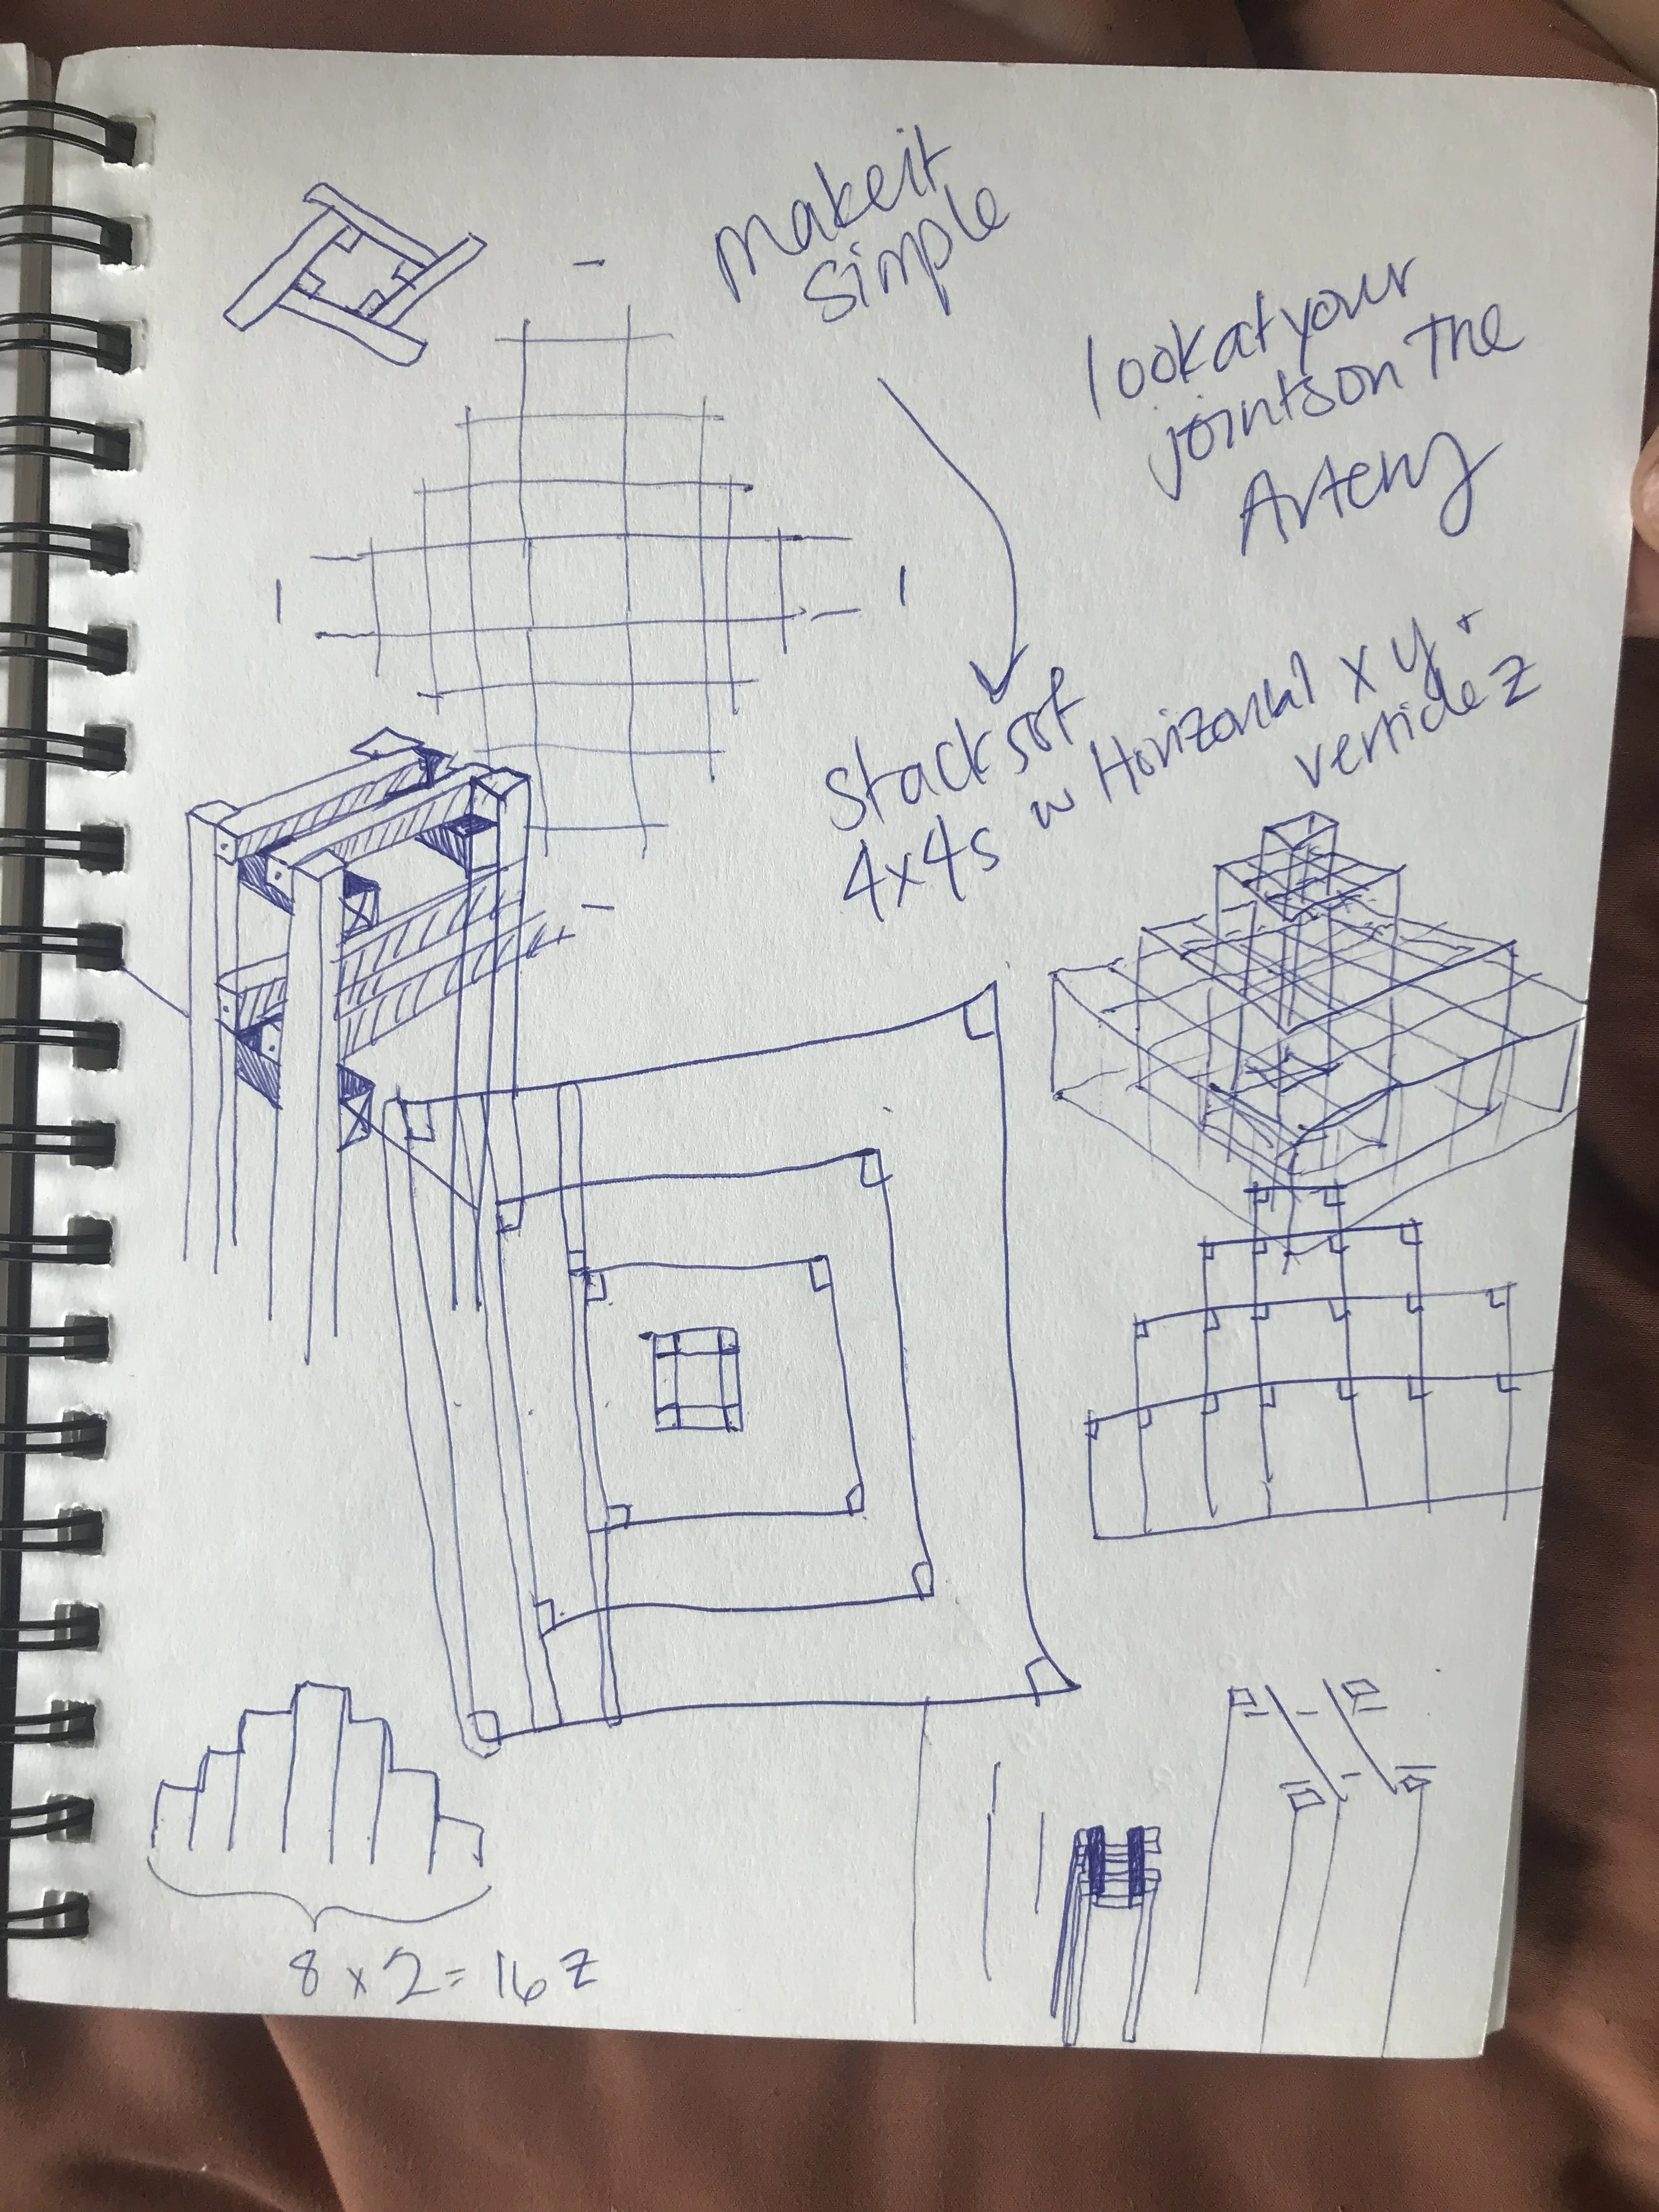 make it
simple
look at your
joints on The
Artery
Stacks of
4x4s w Horizontal x y +
verticle z
8 x 2 = 16 z